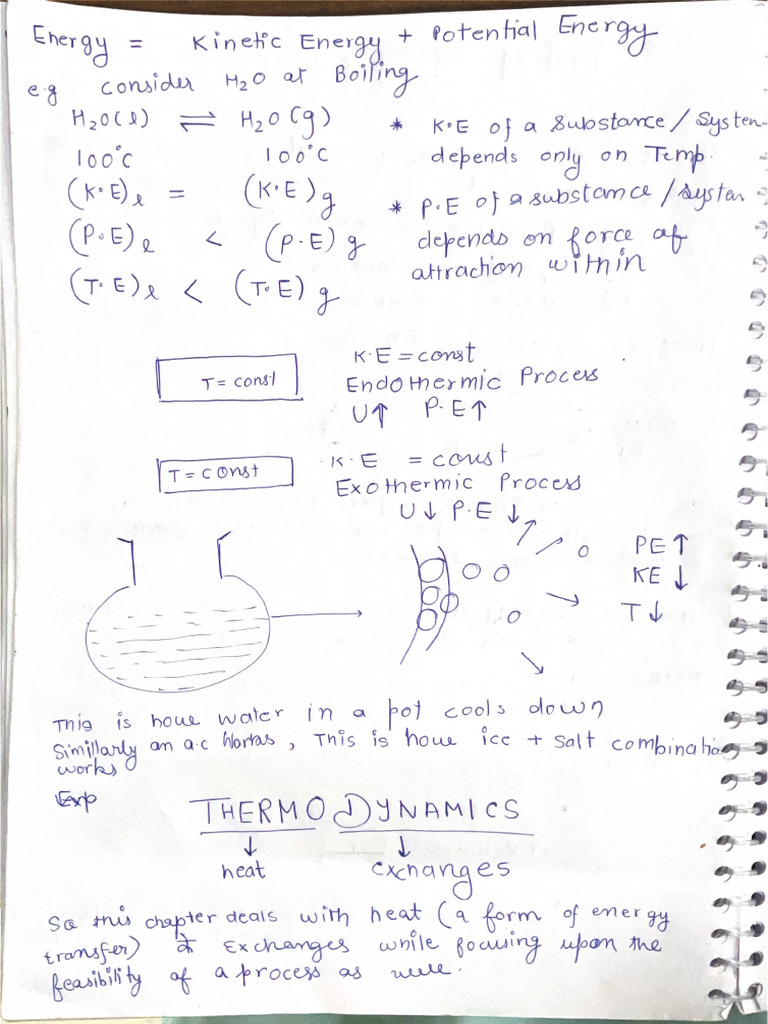 Energy = Kinetic Energy + Potential Energy
e.g consider H₂O at Boiling
H₂O(l) ⇌ H₂O(g)
100°C 100°C
(K.E)ₗ = (K.E)g
(P.E)ₗ < (P.E)g
(T.E)ₗ < (T.E)g
* K.E of a substance/System
depends only on Temp.
* P.E of a substance/System
depends on force of
attraction within
T = const
K.E = const
Endothermic Process
U↑ P.E↑
T = const
K.E = const
Exothermic Process
U↓ P.E↓
PE↑
KE↓
T↓
This is houe water in a pot cools down
Simillarly an a.c Works, This is houe ice + salt combination
works
Exp
THERMODYNAMICS
↓ ↓
heat exchanges
So this chapter deals with heat (a form of energy
transfer) exchanges while focusing upon the
feasibility of a process as well.